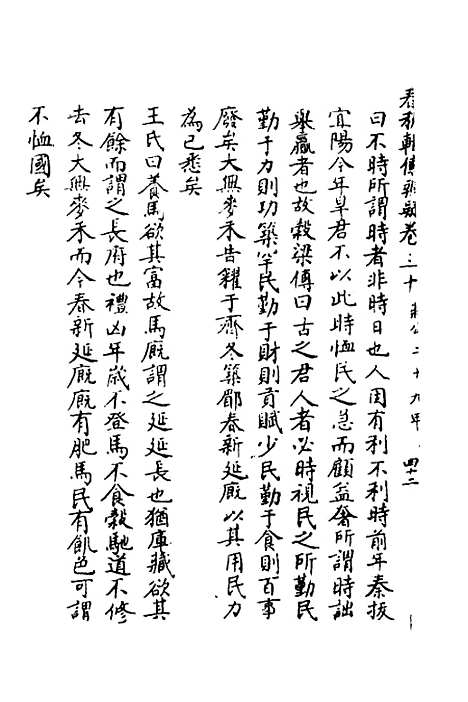 春秋輯傳辨疑卷三十 莊公二十九年 四十二
曰不時所謂時者非時日也人固有利不利時前年秦拔
宜陽今年旱君不以此時恤民之急而顧益奢所謂時詘
舉贏者也故穀梁傳曰古之君人者必時視民之所勤民
勤于力則功築罕民勤于財則貢賦少民勤于食則百事
廢矣大無麥禾告糴于齊冬築郿春新延廐以其用民力
為已悉矣
王氏曰養馬欲其富故馬廐謂之延延長也猶庫藏欲其
有餘而謂之長府也禮凶年歲不登馬不食穀馳道不修
去冬大無麥禾而今春新延廐廐有肥馬民有飢色可謂
不恤國矣